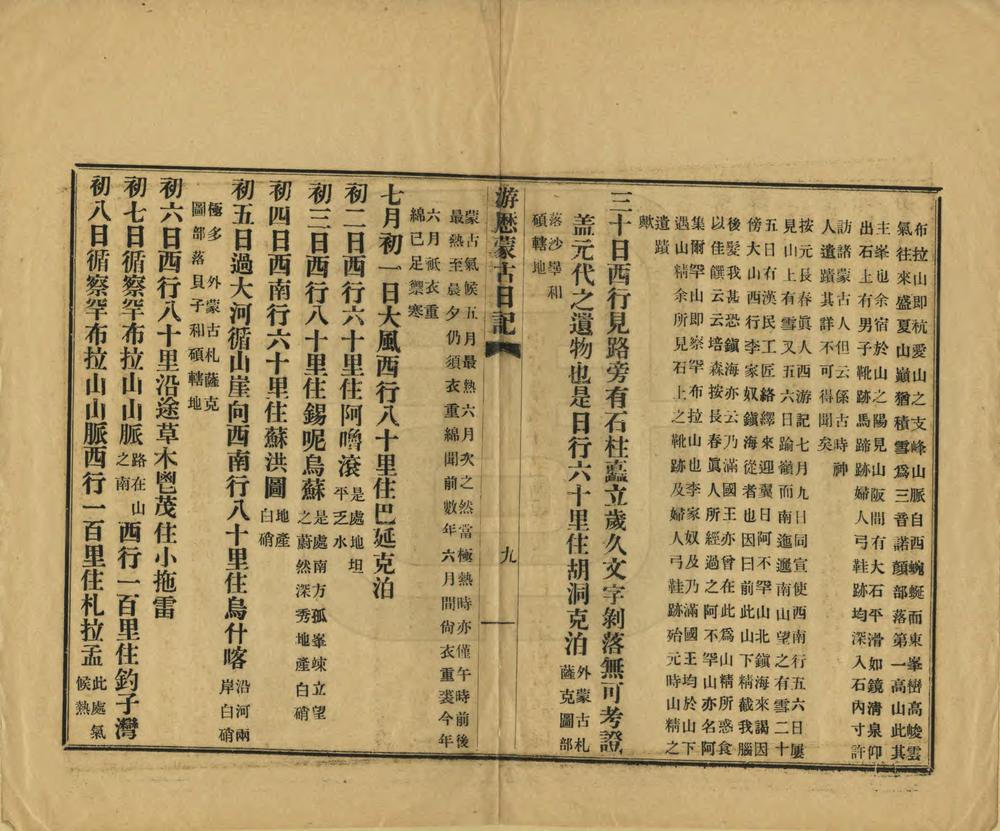 布拉山即杭愛山之支峰山脈自西蜿蜒而東峯巒高峻雲
氣往來盛夏山巔猶積雪爲三音諾顏部落第一高山此其
主峯也余宿於山之陽見山阪間有大石平滑如鏡清泉仰
出石上有男子靴跡馬蹄跡婦人弓鞋跡均深入石內寸許
訪諸蒙古人但云係古時神
人遺蹟其詳不可得聞矣
按元長春眞人西游記七月九日同宣使西南行五六日屢
見山上有雪又五六日踰嶺而南迤邐南山望之有雪二十
五日有漢民工匠絡繹來迎翼日阿不罕山北鎭海來謁因
傍大山西行李家奴鎭海從者也因曰前此山下精截我腦
後髮我甚恐鎭海亦云乃滿國王亦曾在此爲山精所惑食
以佳饌云云培森按長春眞人所經過之阿不罕山亦名阿
集爾罕山即察罕布拉山也李家奴及乃滿國王均於山下
遇山精余所見石上之靴跡及婦人弓鞋跡殆元時山精之
遺蹟
歟
三十日西行見路旁有石柱矗立歲久文字剝落無可考證
盖元代之遺物也是日行六十里住胡洞克泊 外蒙古札薩克圖部
落沙畢和
碩轄地
游歷蒙古日記
九
蒙古氣候五月最熱六月次之然當極熱時亦僅午時前後
最熱至晨夕仍須衣重綿聞前數年六月間尙衣重裘今年
六月祇衣重
綿已足禦寒
七月初一日大風西行八十里住巴延克泊
初二日西行六十里住阿嚕滾 是處地坦平乏水
初三日西行八十里住錫呢烏蘇 是處南方孤峯竦立望之蔚然深秀地產白硝
初四日西南行六十里住蘇洪圖 地產白硝
初五日過大河循山崖向西南行八十里住烏什喀 沿河兩岸白硝
極多 外蒙古札薩克
圖部落貝子和碩轄地
初六日西行八十里沿途草木鬯茂住小拖雷
初七日循察罕布拉山山脈 路在山之南 西行一百里住釣子灣
初八日循察罕布拉山山脈西行一百里住札拉孟 此處氣候熱